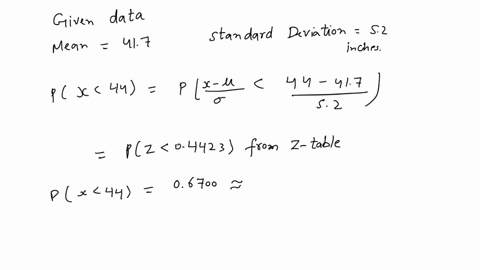 Given data
Mean = 41.7
standard Deviation = 5.2 inches.
P(x<44) = P[x-μ/σ < 44-41.7/5.2)
= P(Z<0.4423) from Z-table
P(x<44) = 0.6700 ≈